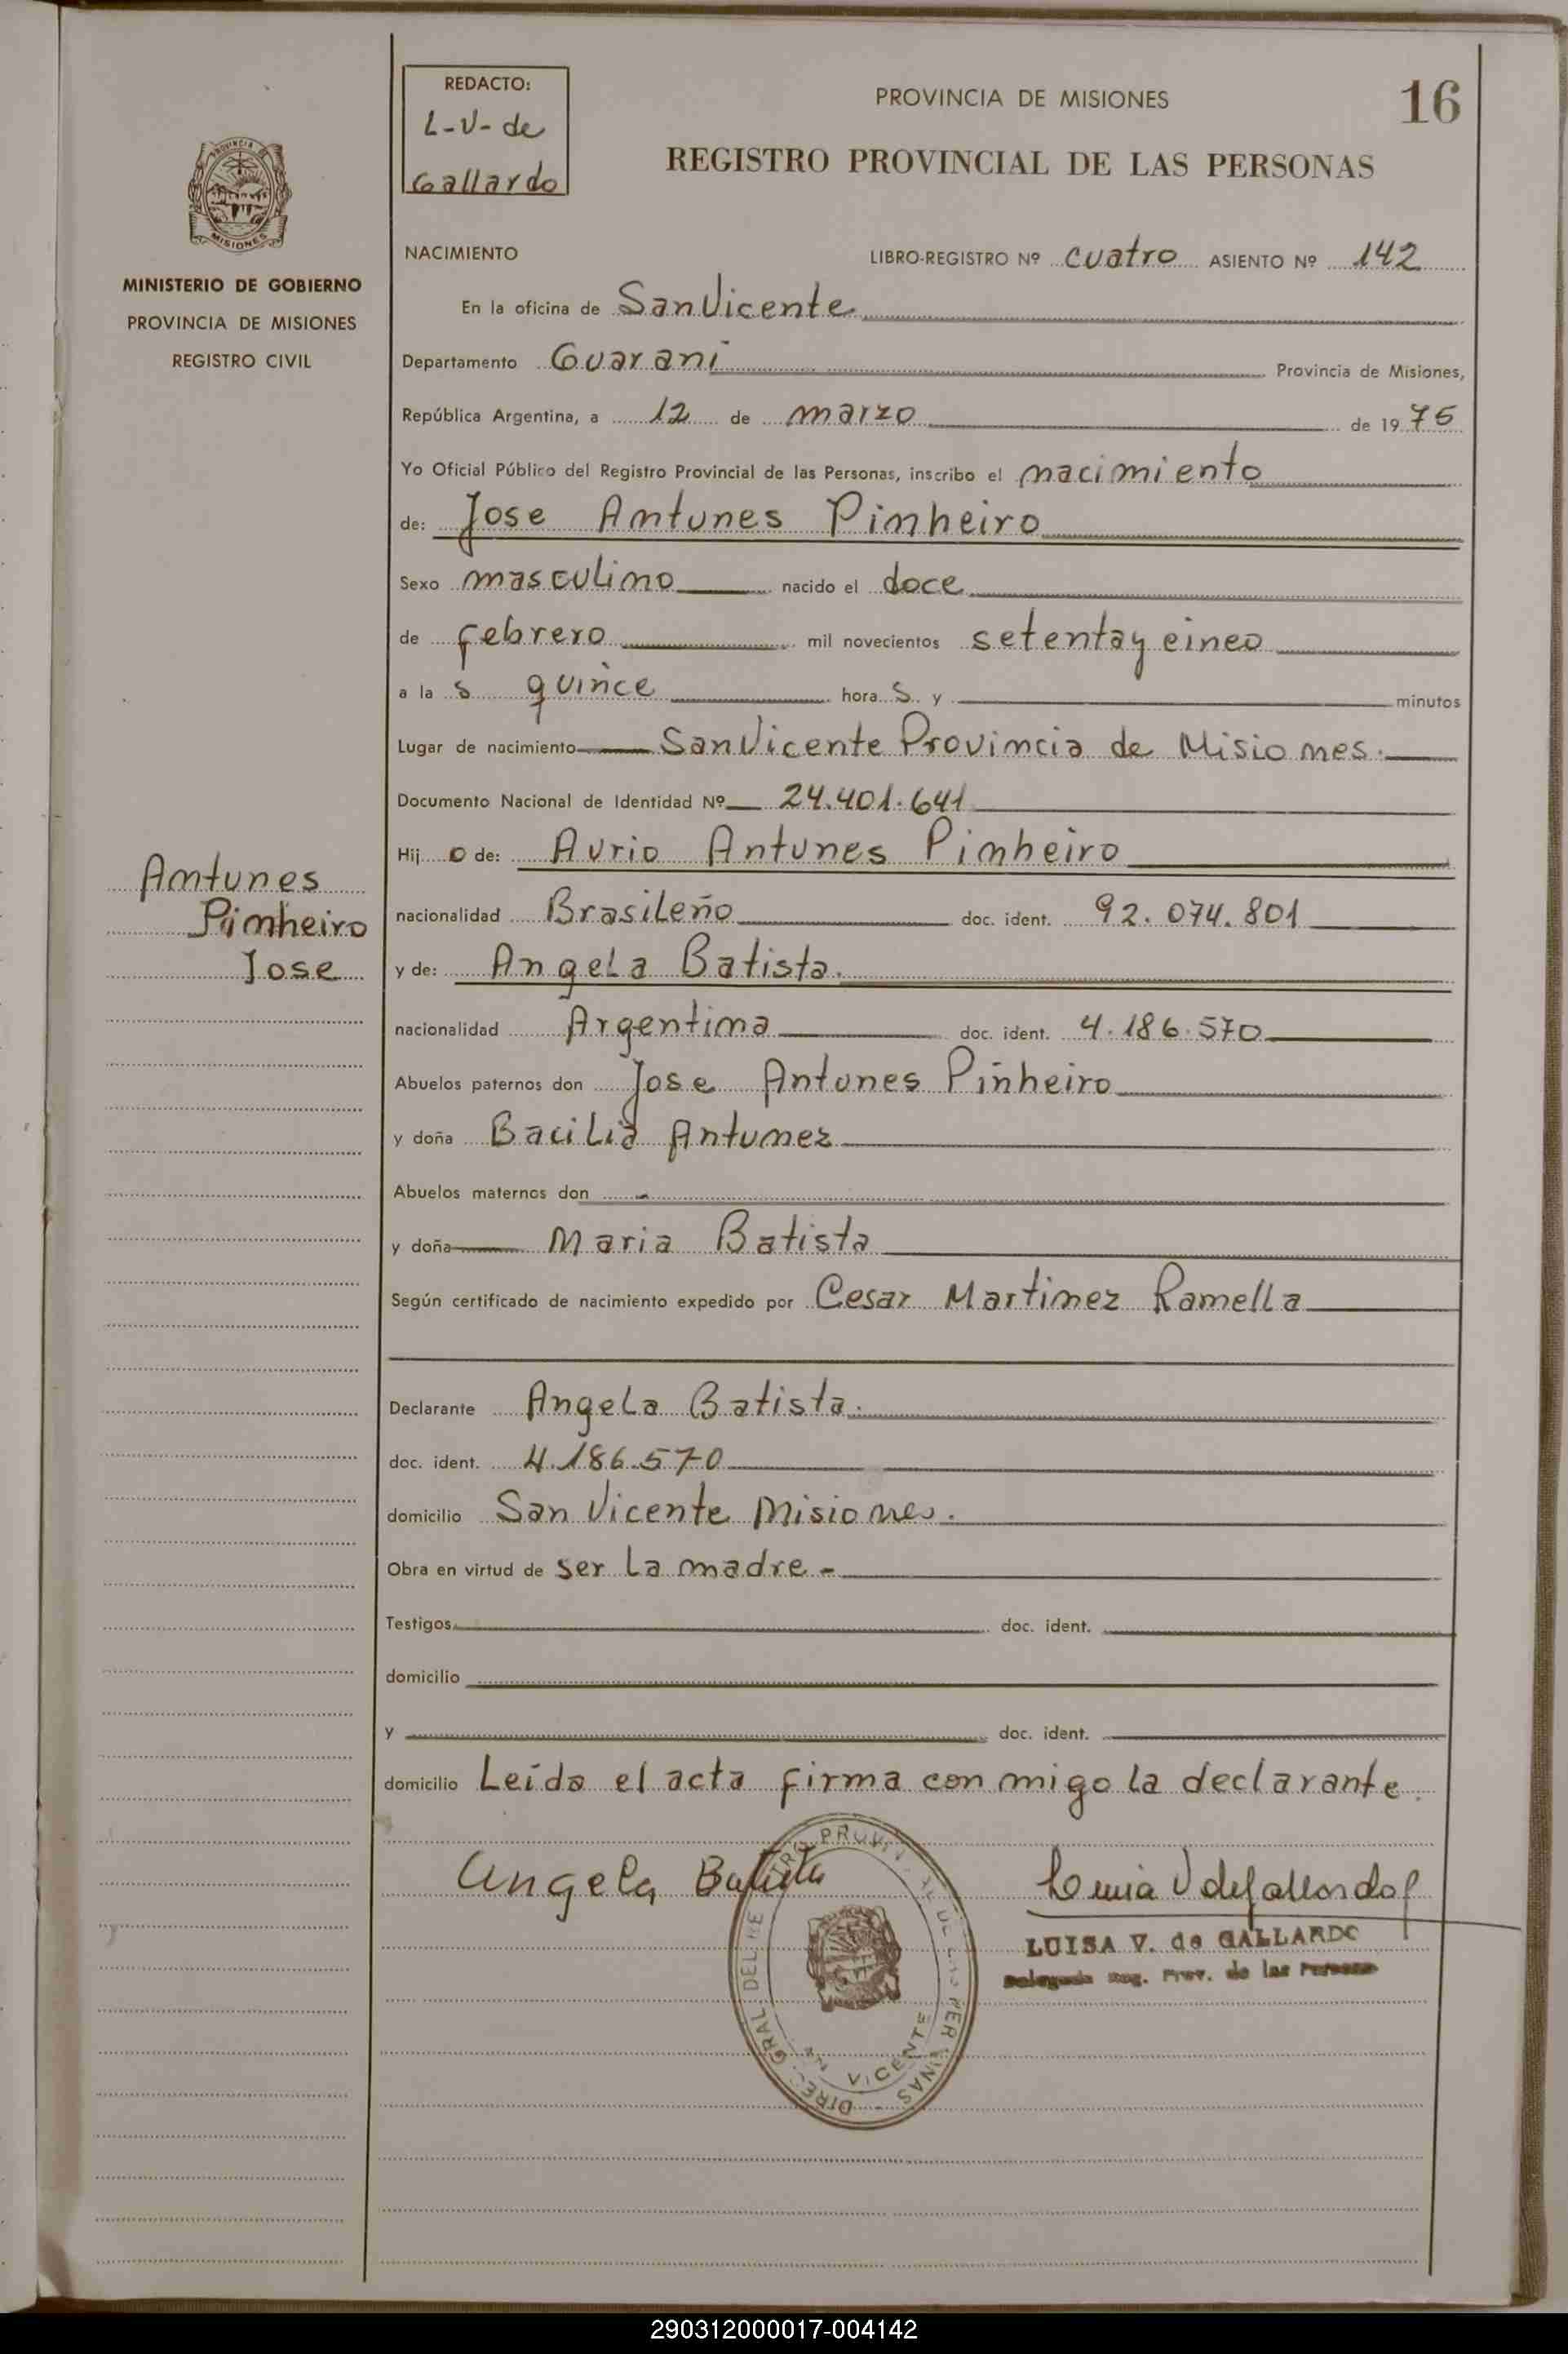 16
REDACTO:
L-V- de
Gallardo
PROVINCIA DE MISIONES
REGISTRO PROVINCIAL DE LAS PERSONAS
PROVINCIA DE
MISIONES
MINISTERIO DE GOBIERNO
PROVINCIA DE MISIONES
REGISTRO CIVIL
NACIMIENTO LIBRO-REGISTRO Nº cuatro ASIENTO Nº 142
En la oficina de San Vicente
Departamento Guarani Provincia de Misiones,
República Argentina, a 12 de marzo de 1975
Yo Oficial Público del Registro Provincial de las Personas, inscribo el nacimiento
de: Jose Antunes Pinheiro
Sexo masculino nacido el doce
de febrero mil novecientos setenta y cinco
a la s quince hora s y minutos
Lugar de nacimiento San Vicente Provincia de Misiones.
Documento Nacional de Identidad Nº 24.401.641
Hij o de: Aurio Antunes Pinheiro
Antunes
Pinheiro
Jose
nacionalidad Brasileño doc. ident. 92.074.801
y de: Angela Batista.
nacionalidad Argentina doc. ident. 4.186.570
Abuelos paternos don Jose Antunes Pinheiro
y doña Bacilia Antunez
Abuelos maternos don -
y doña Maria Batista
Según certificado de nacimiento expedido por Cesar Martinez Ramella
Declarante Angela Batista.
doc. ident. 4.186.570
domicilio San Vicente Misiones.
Obra en virtud de ser la madre -
Testigos doc. ident.
domicilio
y doc. ident.
domicilio Leída el acta firma con migo la declarante.
Angela Batista
LUISA V. de GALLARDO
Delegada Reg. Prov. de las Personas
VICENTE
290312000017-004142